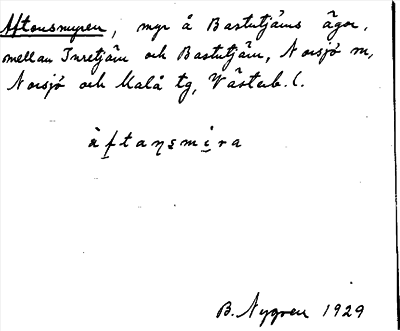 Aftonsmyren, myr å Bastutjärns ägor,
mellan Inretjärn och Bastutjärn, Norsjö sn,
Norsjö och Malå tg, Västerb. l.
àftaŋsmira
B. Nygren 1929